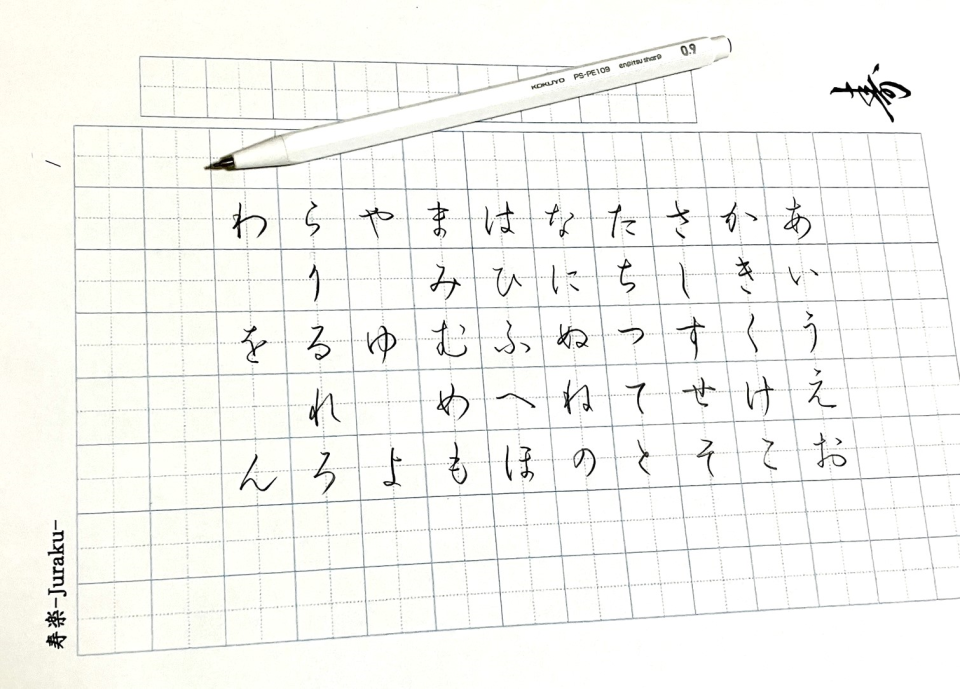 あいうえお
かきくけこ
さしすせそ
たちつてと
なにぬねの
はひふへほ
まみむめも
やゆよ
らりるれろ
わをん
KOKUYO PS-PE109 enpitsu sharp 0.9
寿
寿楽-Juraku-